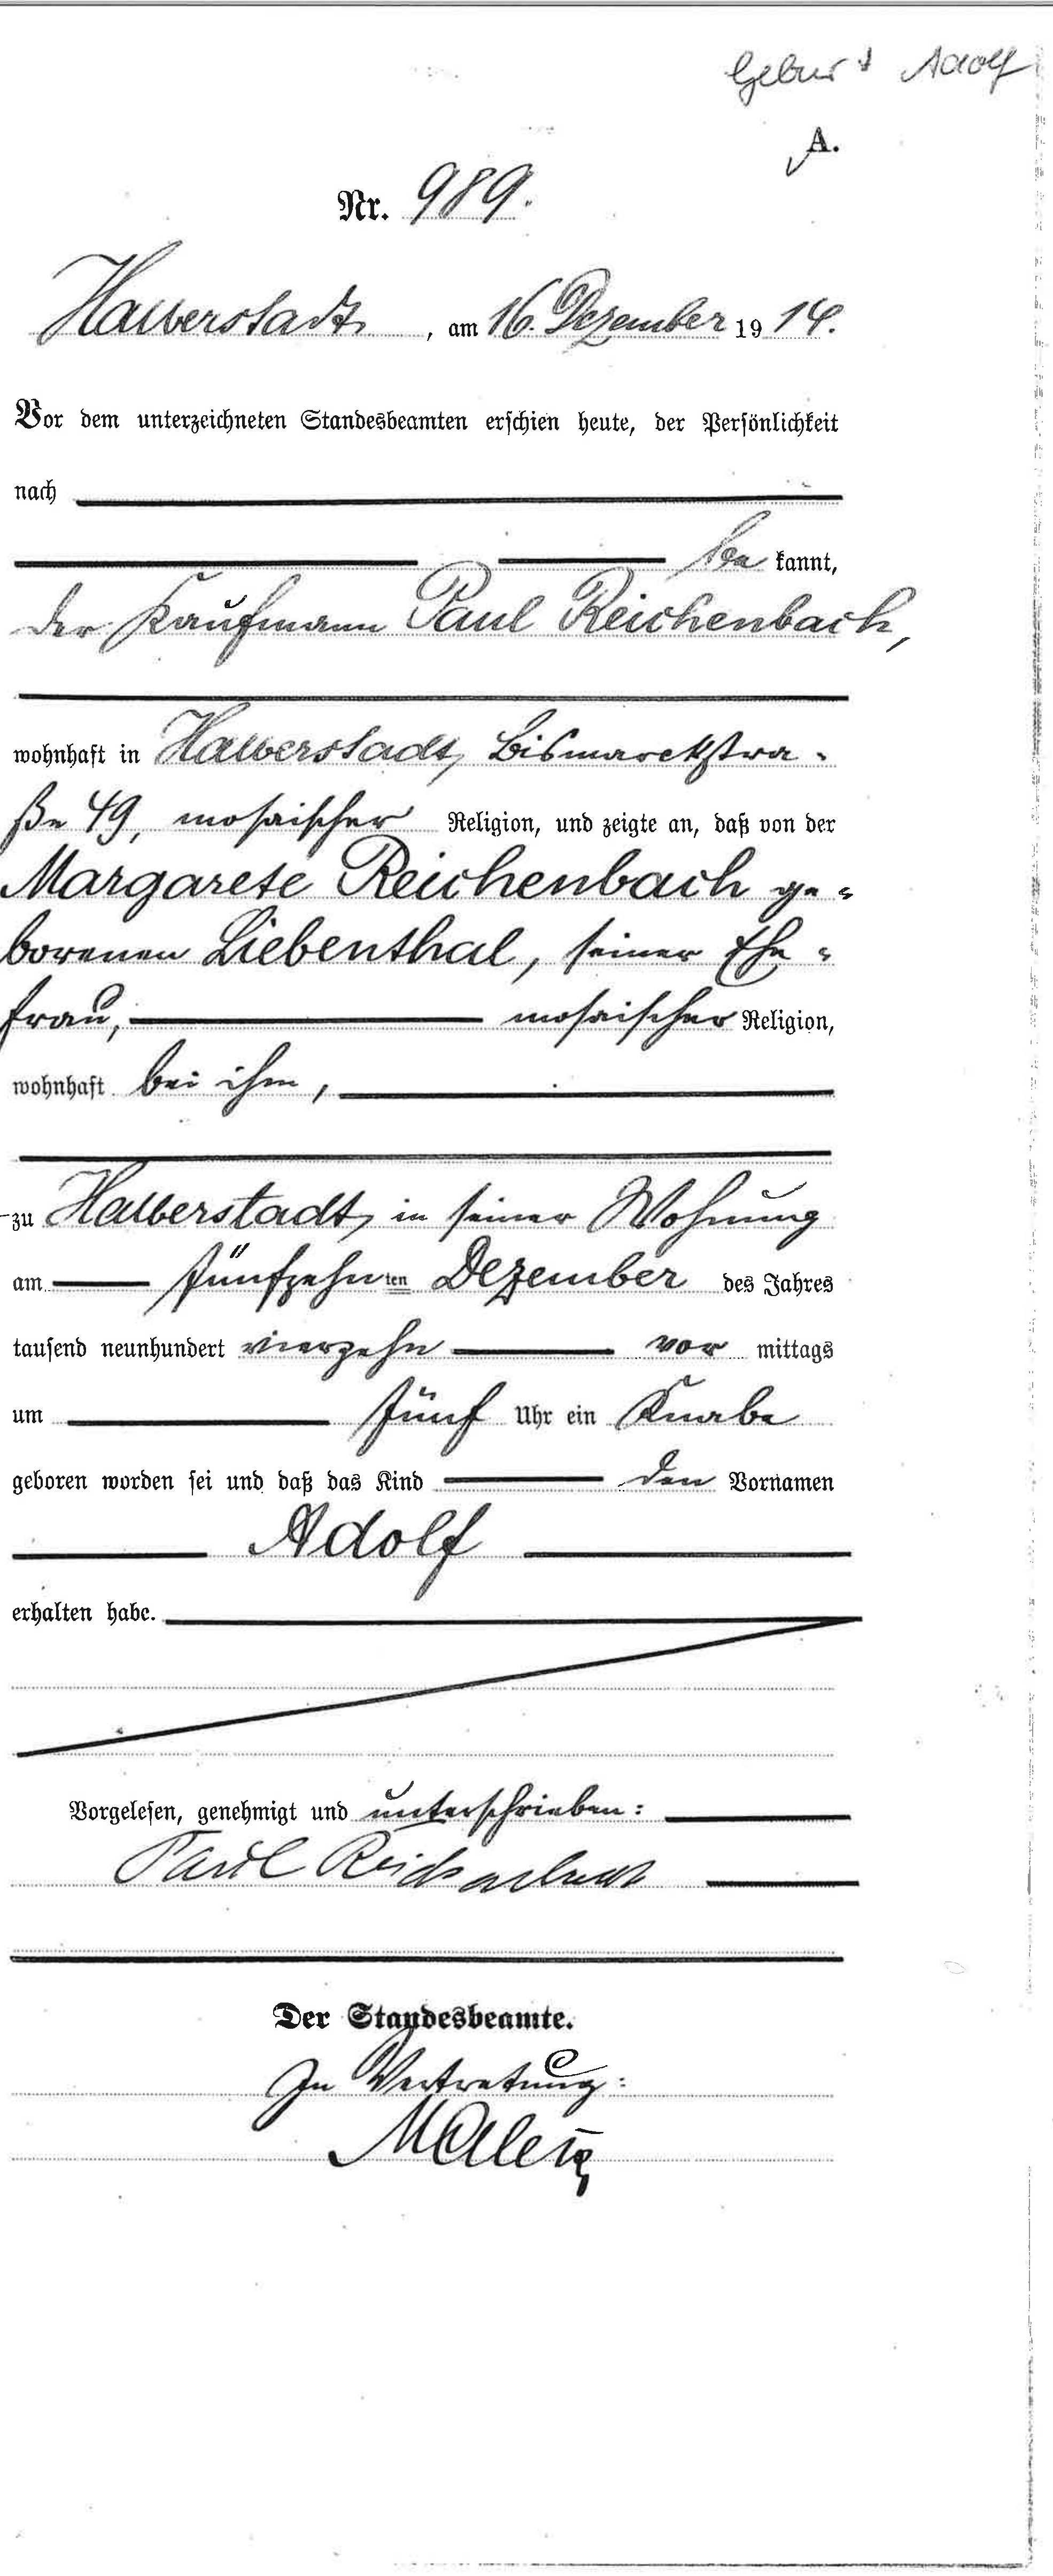 Geburt Adolf
A.
Nr. 989.
Halberstadt, am 16. Dezember 1914.
Vor dem unterzeichneten Standesbeamten erschien heute, der Persönlichkeit
nach
be kannt,
der Kaufmann Paul Reichenbach,
wohnhaft in Halberstadt, Bismarckstra-
ße 49, mosaischer Religion, und zeigte an, daß von der
Margarete Reichenbach ge-
borenen Liebenthal, seiner Ehe-
frau, mosaischer Religion,
wohnhaft bei ihm,
zu Halberstadt, in seiner Wohnung
am fünfzehnten Dezember des Jahres
tausend neunhundert vierzehn vor mittags
um fünf Uhr ein Knabe
geboren worden sei und daß das Kind den Vornamen
Adolf
erhalten habe.
Vorgelesen, genehmigt und unterschrieben:
Paul Reichenbach
Der Standesbeamte.
In Vertretung: